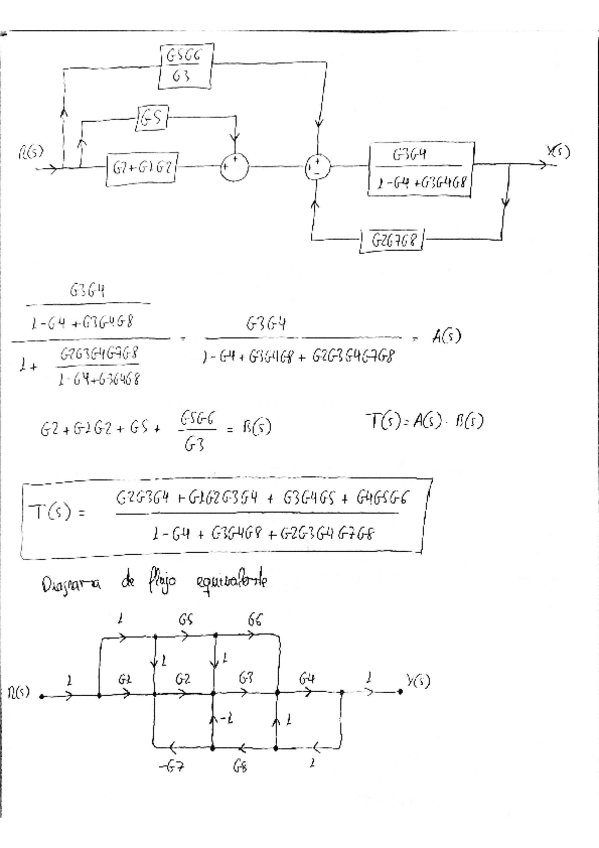 G5G6
G3
G5
R(s)
G2+G1G2
+
+
+
+
-
G3G4
1-G4+G3G4G8
Y(s)
G2G7G8
G3G4
1-G4+G3G4G8
1+
G2G3G4G7G8
1-G4+G3G4G8
=
G3G4
1-G4+G3G4G8+G2G3G4G7G8
= A(s)
G2+G1G2+G5+ G5G6/G3 = B(s)
T(s)=A(s)·B(s)
T(s)=
G2G3G4+G1G2G3G4+G3G4G5+G4G5G6
1-G4+G3G4G8+G2G3G4G7G8
Diagrama de flujo equivalente
1 G5 G6
1 1
R(s) 1 G1 G2 G3 G4 1 Y(s)
-1 1
-G7 G8 1